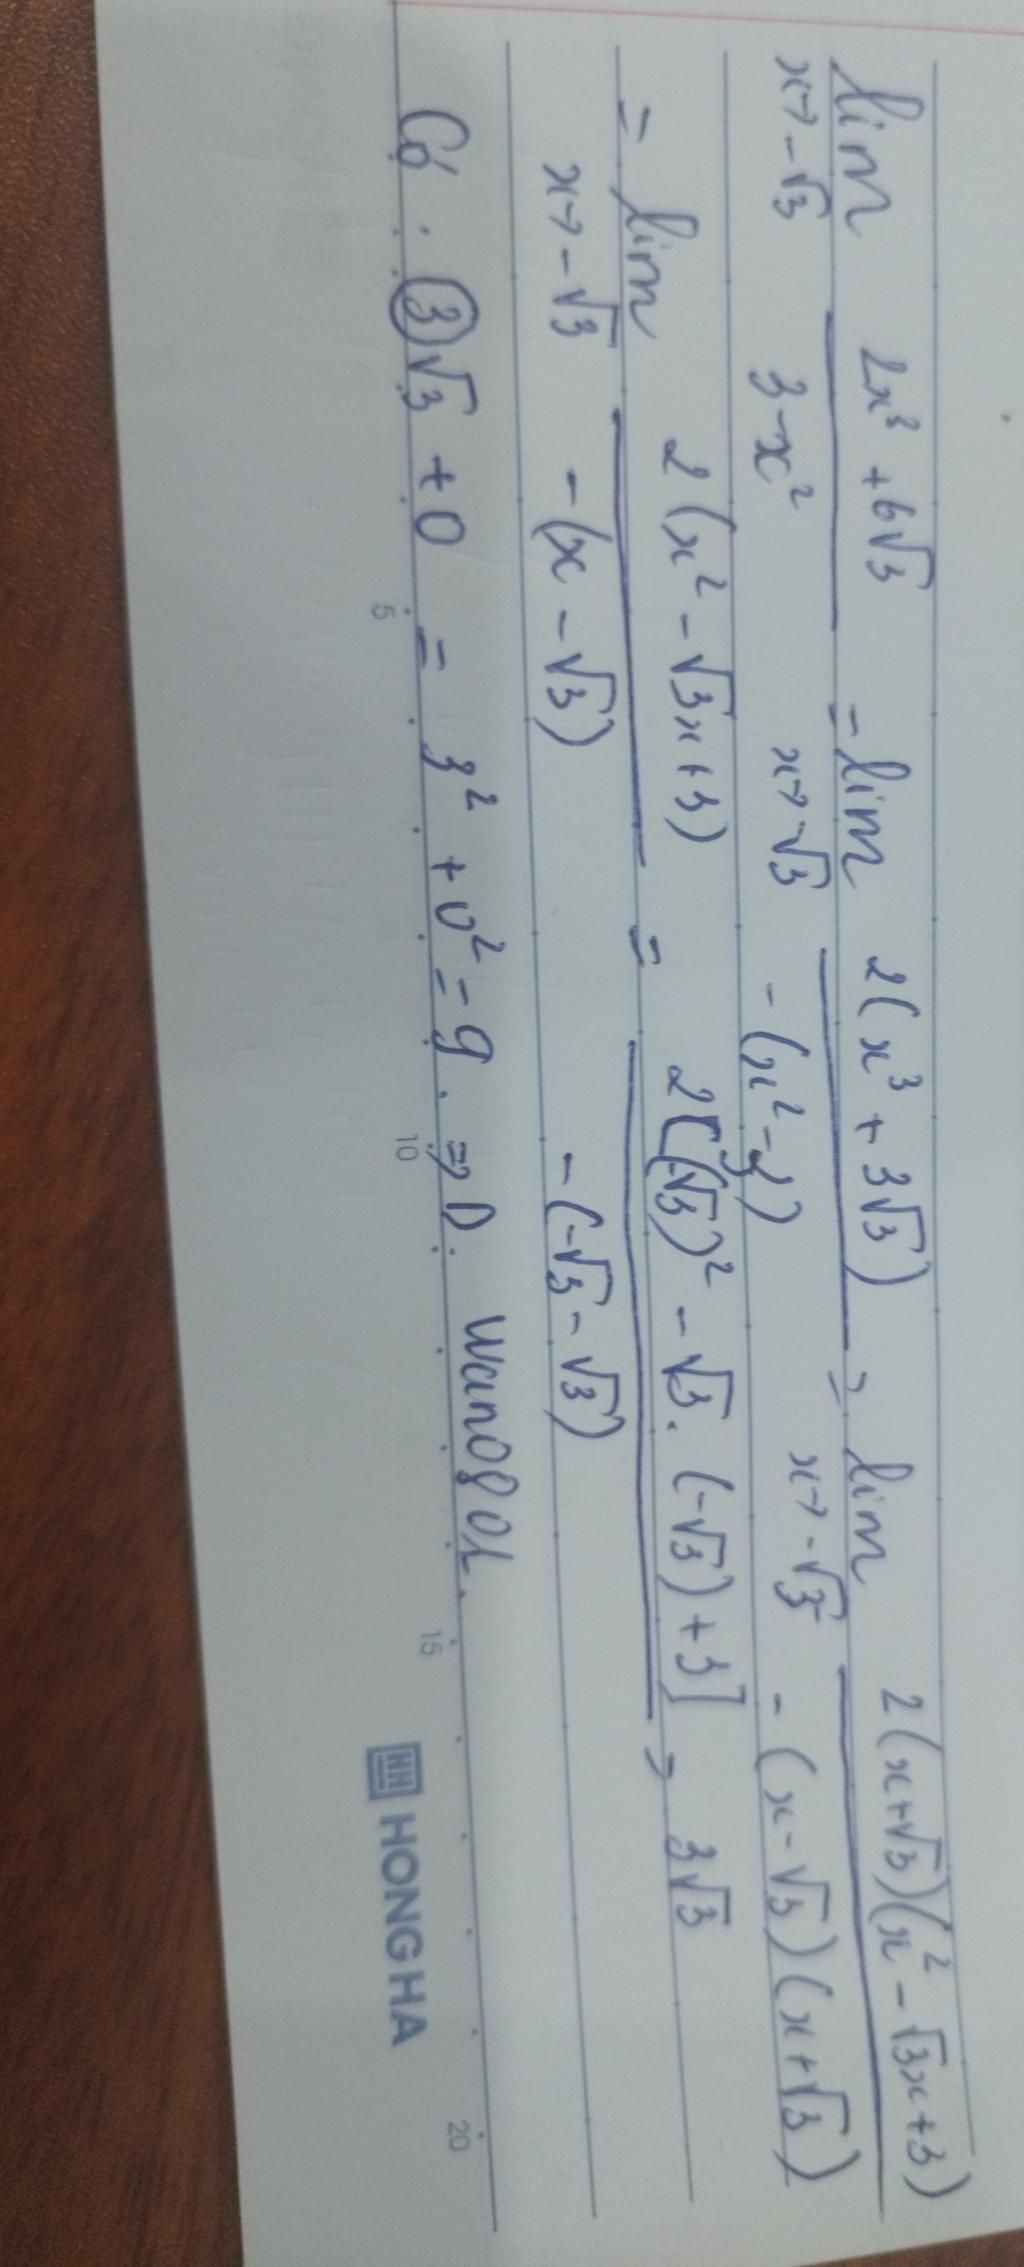 lim x→-√3 (2x³ + 6√3)/(3-x²) = lim x→-√3 2(x³ + 3√3)/-(x²-3) = lim x→-√3 2(x+√3)(x²-√3x+3)/-(x-√3)(x+√3)
= lim x→-√3 2(x²-√3x+3)/-(x-√3) = 2[(-√3)²-√3.(-√3)+3]/-(-√3-√3) = 3√3
Có : 3√3 + 0 = 3² + 0² = 9. ⇒ D. wano801.
5 10 15 20
HH HONG HA